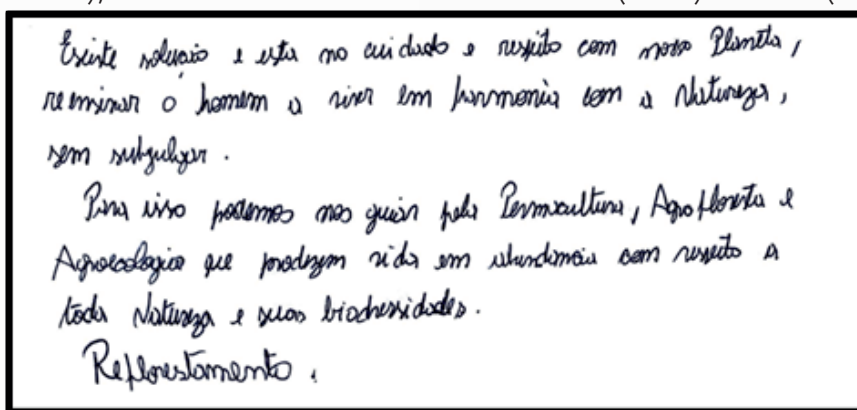 Existe solução e esta no cuidado e respeito com nosso Planeta,
reensinar o homem a viver em harmonia com a Natureza,
sem subjulgar.
Para isso podemos nos guiar pela Permacultura, Agrofloresta e
Agroecologia que produzem vida em abundância com respeito a
toda Natureza e suas biodiversidades.
Reflorestamento.